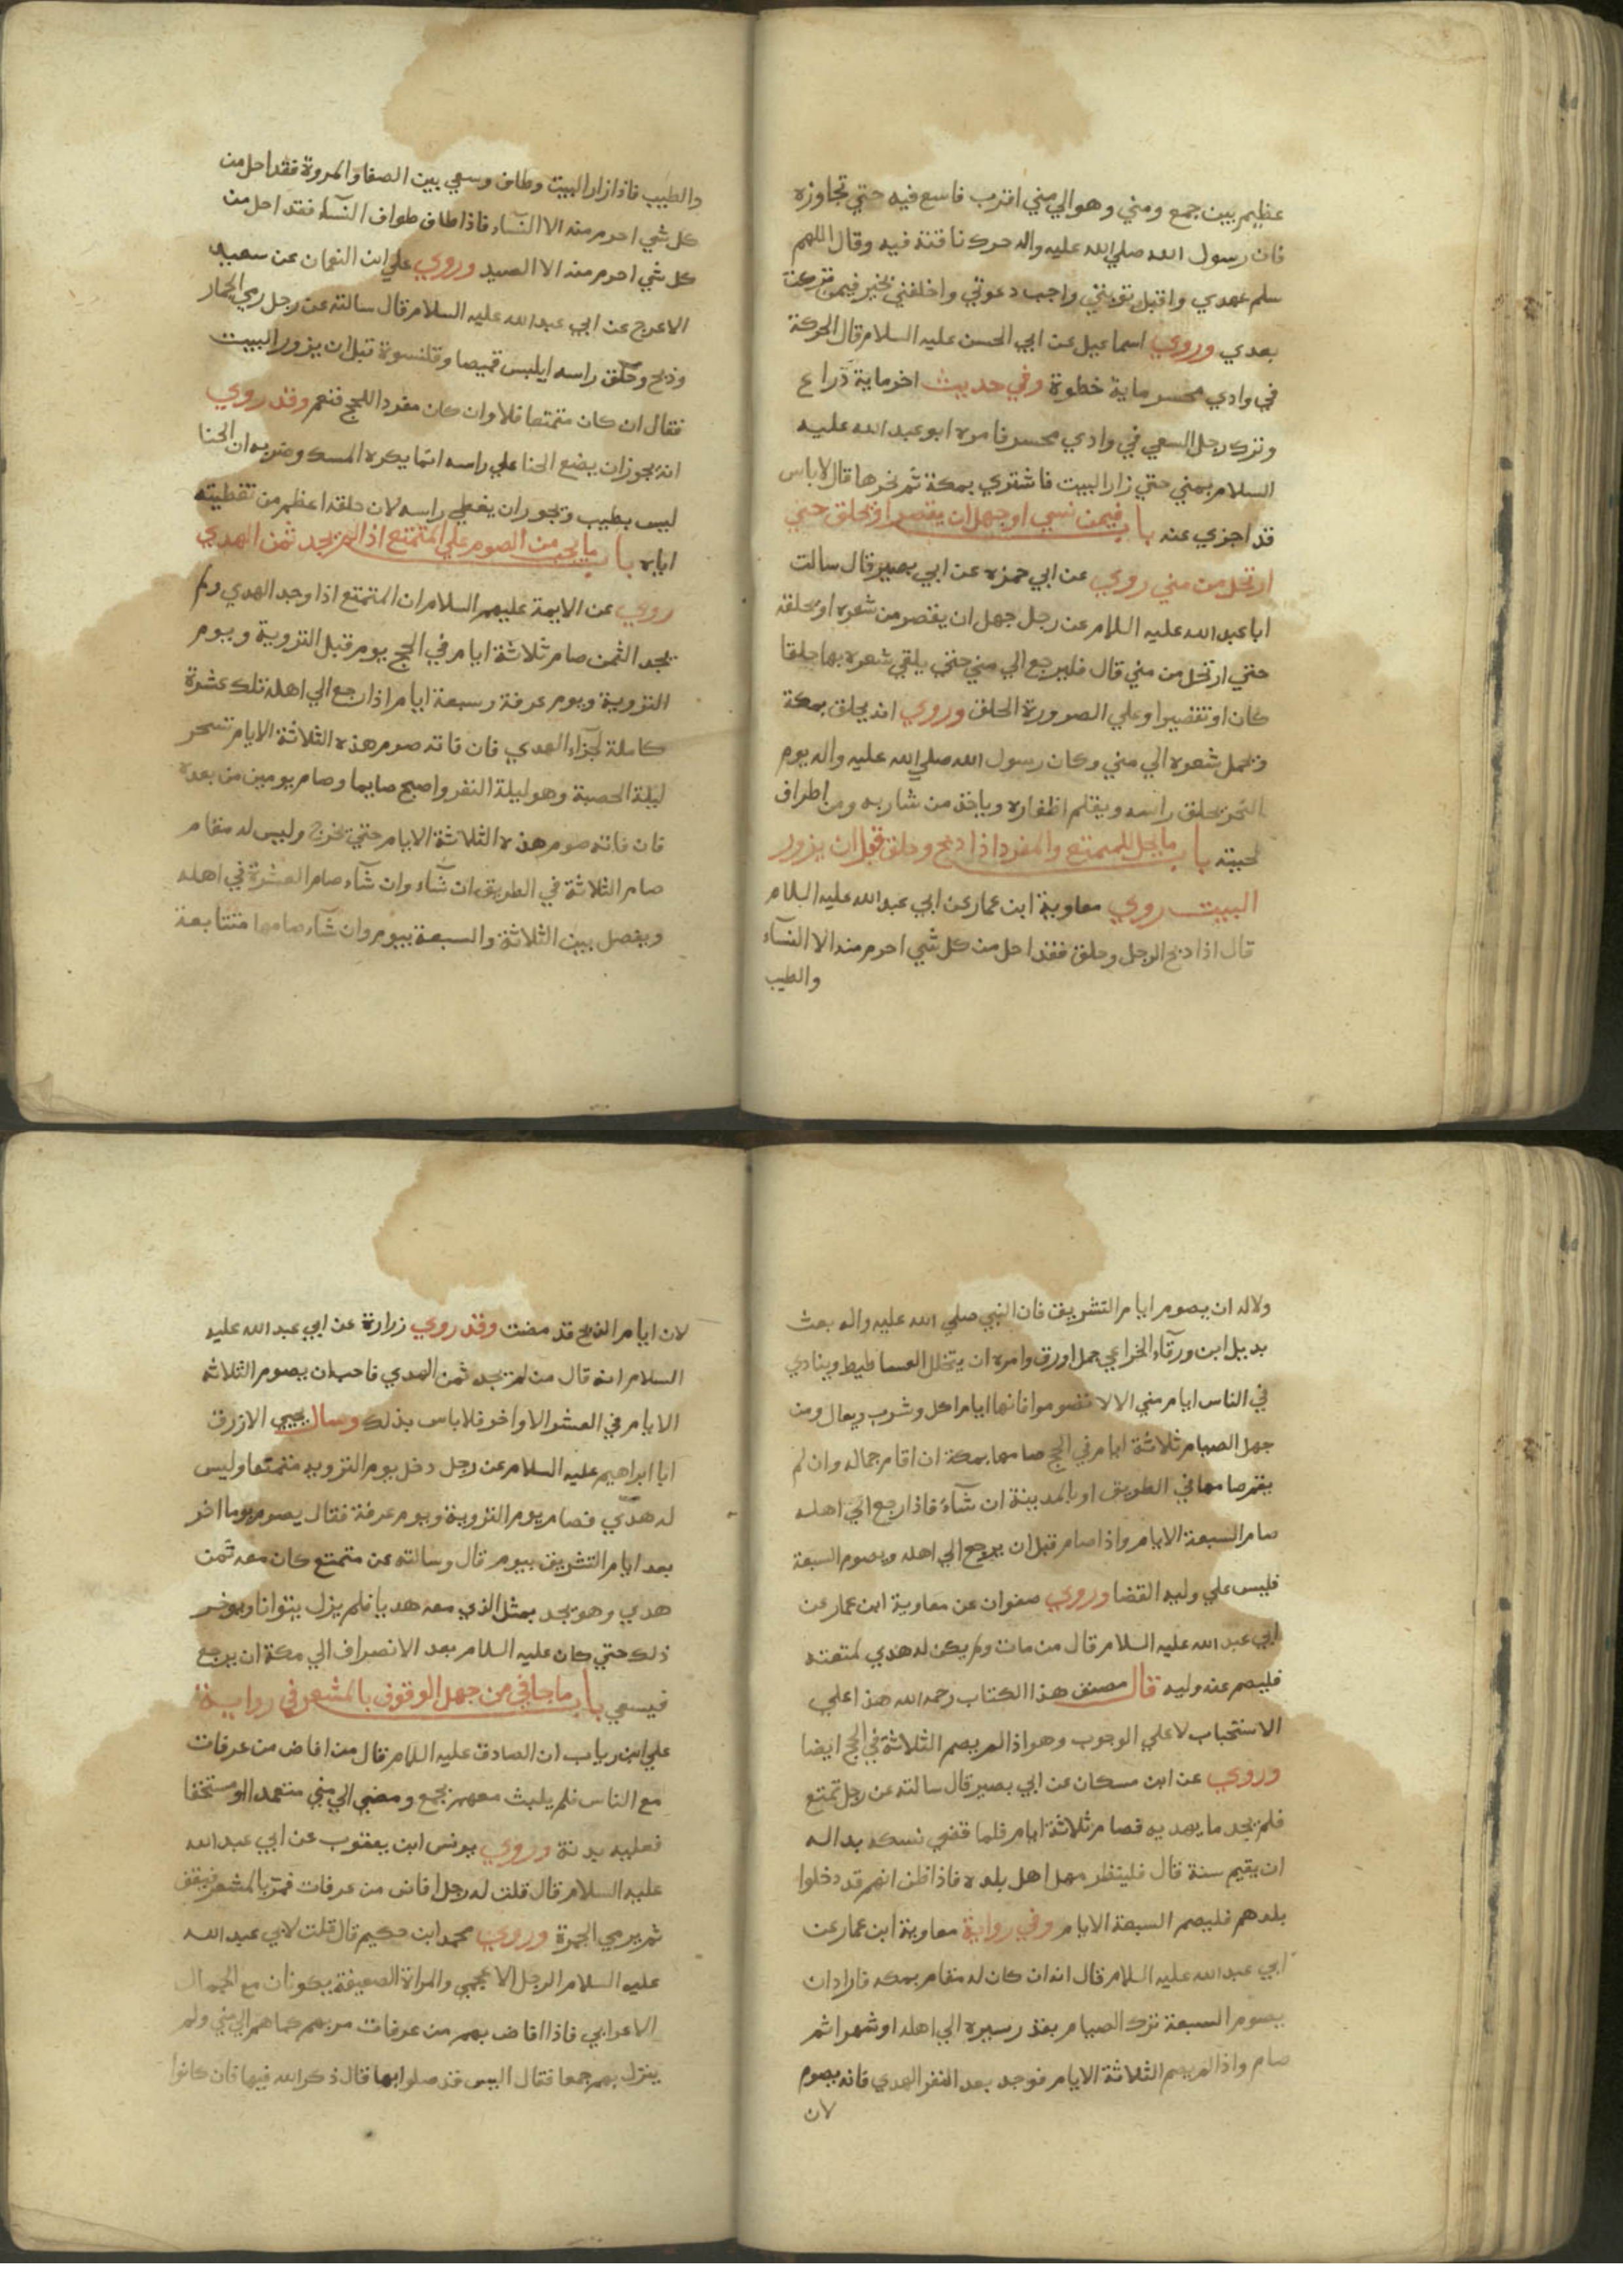 عظيم بين جمع ومني وهو الي مني اقرب فاسع فيه حتي تجاوزه
فان رسول الله صلي الله عليه واله حرك ناقته فيه وقال اللهم
سلم عهدي واقبل توبتي واجب دعوتي واخلفني بخير فيمن تركت
بعدي وروي اسماعيل عن ابي الحسن عليه السلام قال الحركة
في وادي محسر ماية خطوة وفي حديث اخر ماية ذراع
وترك رجل السعي في وادي محسر فامره ابو عبد الله عليه
السلام بمني حتي زار البيت فاشتري بمكة ثم نحرها قال لا باس
قد اجزي عنه باب فيمن نسي او جهل ان يقصر او يحلق حتي
ارتحل من مني روي عن ابي حمزه عن ابي بصير قال سالت
ابا عبد الله عليه السلام عن رجل جهل ان يقصر من شعره او يحلقه
حتي ارتحل من مني قال فليرجع الي مني حتي يلقي شعره بها حلقا
كان او تقصيرا وعلي الصرورة الحلق وروي انه يحلق بمكة
ويحمل شعره الي مني وكان رسول الله صلي الله عليه واله يوم
النحر يحلق راسه ويقلم اظفاره وياخذ من شاربه ومن اطراف
لحيته باب ما يحل للمتمتع والمفرد اذا ذبح وحلق قبل ان يزور
البيت روي معاوية ابن عمار عن ابي عبد الله عليه السلام
قال اذا ذبح الرجل وحلق فقد احل من كل شي احرم منه الا النسآء
والطيب
والطيب فاذا زار البيت وطاف وسعي بين الصفا والمروة فقد احل من
كل شي احرم منه الا النسآء فاذا طاف طواف النسآء فقد احل من
كل شي احرم منه الا الصيد وروي علي ابن النعمان عن سعيد
الاعرج عن ابي عبد الله عليه السلام قال سالته عن رجل رمي الجمار
وذبح وحلق راسه ايلبس قميصا وقلنسوة قبل ان يزور البيت
فقال ان كان متمتعا فلا وان كان مفردا للحج فنعم وقد روي
انه يجوز ان يضع الحنا علي راسه انما يكره المسك وضربه ان الحنا
ليس بطيب وتجوز ان يغطي راسه لان حلقه اعظم من تغطيته
اياه باب ما يجب من الصوم علي المتمتع اذا لم يجد ثمن الهدي
روي عن الايمة عليهم السلام ان المتمتع اذا وجد الهدي ولم
يجد الثمن صام ثلاثة ايام في الحج يوم قبل التروية ويوم
التروية ويوم عرفة وسبعة ايام اذا رجع الي اهله تلك عشرة
كاملة لجزآء الهدي فان فاته صوم هذه الثلاثة الايام تسحر
ليلة الحصبة وهو ليلة النفر واصبح صايما وصام يومين من بعده
فان فاته صوم هذه الثلاثة الايام حتي يخرج وليس له مقام
صام الثلاثة في الطريق ان شآء وان شآء صام العشرة في اهله
ويفصل بين الثلاثة والسبعة بيوم وان شآء صامها متتابعة
ولا له ان يصوم ايام التشريق فان النبي صلي الله عليه واله بعث
بديل ابن ورقآء الخزاعي جمل اورق وامره ان يتخلل الفساطيط وينادي
في الناس ايام مني الا لا تصوموا فانها ايام اكل وشرب وبعال ومن
جهل الصيام ثلاثة ايام في الحج صامها بمكة ان اقام جماله وان لم
يقم صامها في الطريق او بالمدينة ان شآء فاذا رجع الي اهله
صام السبعة الايام واذا صام قبل ان يرجع الي اهله ويصوم السبعة
فليس علي وليه القضا وروي صفوان عن معاوية ابن عمار عن
ابي عبد الله عليه السلام قال من مات ولم يكن له هدي لمتعته
فليصم عنه وليه قال مصنف هذا الكتاب رحمه الله هذا علي
الاستحباب لا علي الوجوب وهو اذا لم يصم الثلاثة في الحج ايضا
وروي عن ابن مسكان عن ابي بصير قال سالته عن رجل تمتع
فلم يجد ما يهديه فصام ثلاثة ايام فلما قضي نسكه بدا له
ان يقيم سنة قال فلينظر مهل اهل بلده فاذا ظن انهم قد دخلوا
بلدهم فليصم السبعة الايام وفي رواية معاوية ابن عمار عن
ابي عبد الله عليه السلام قال انه ان كان له مقام بمكه فاراد ان
يصوم السبعة ترك الصيام بقدر سيره الي اهله او شهرا ثم
صام واذا لم يصم الثلاثة الايام فوجد بعد النفر الهدي فانه يصوم
لان
لان ايام الذبح قد مضت وقد روي زرارة عن ابي عبد الله عليه
السلام انه قال من لم يجد ثمن الهدي فاحب ان يصوم الثلاثه
الايام في العشر الاواخر فلا باس بذلك وسال يحيي الازرق
ابا ابراهيم عليه السلام عن رجل دخل يوم التروية متمتعا وليس
له هدي فصام يوم التروية ويوم عرفة فقال يصوم يوما اخر
بعد ايام التشريق بيوم قال وسالته عن متمتع كان معه ثمن
هدي وهو يجد بمثل الذي معه هديا فلم يزل يتوانا ويوخر
ذلك حتي كان عليه السلام بعد الانصراف الي مكة ان يرجع
فيسعي باب ما جا في من جهل الوقوف بالمشعر في رواية
علي ابن رياب ان الصادق عليه السلام قال من افاض من عرفات
مع الناس فلم يلبث معهم بجمع ومضي الي مني متعمدا او مستخفا
فعليه بدنة وروي يونس ابن يعقوب عن ابي عبد الله
عليه السلام قال قلت له رجل افاض من عرفات فمر بالمشعر فيقف
ثم يرمي الجمرة وروي محمد ابن حكيم قال قلت لابي عبد الله
عليه السلام الرجل الاعجمي والمراة الضعيفة يكونان مع الجمال
الاعرابي فاذا افاض بهم من عرفات مر بهم كما هم الي مني ولم
ينزل بهم جمعا فقال اليس قد صلوا بها قال ذكر الله فيها فان كانوا